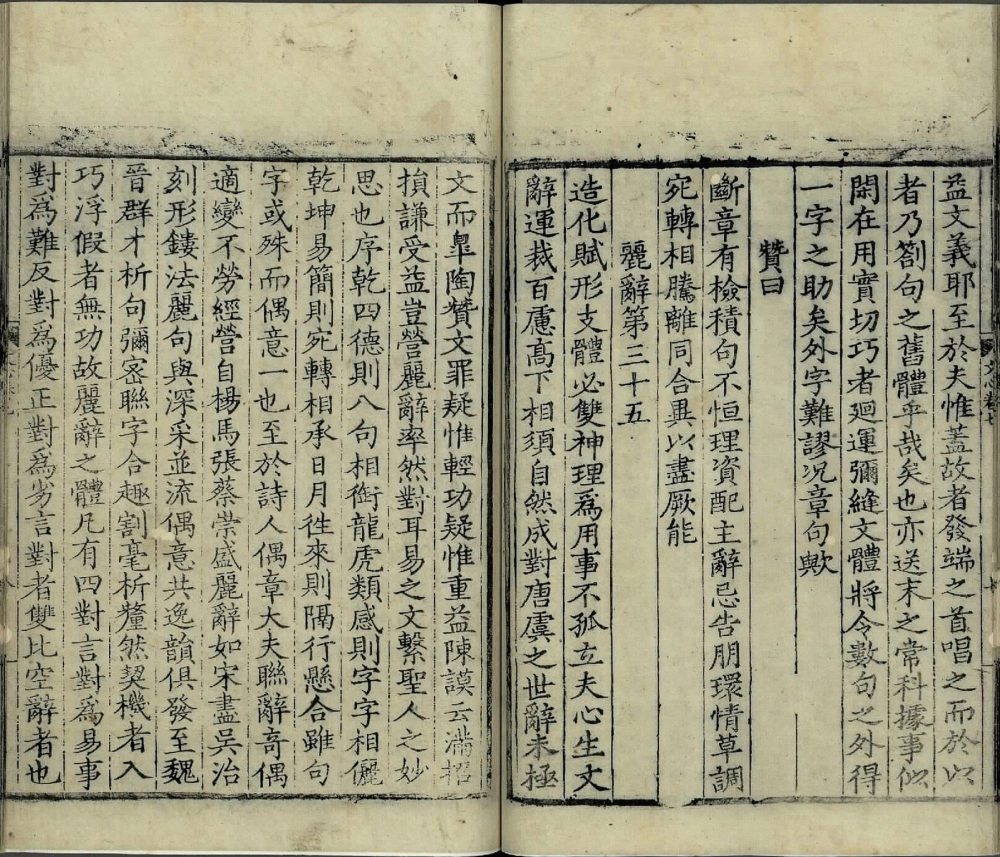 益文義耶至於夫惟蓋故者發端之首唱之而於以
者乃劄句之舊體乎哉矣也亦送末之常科據事似
閑在用實切巧者廻運彌縫文體將令數句之外得
一字之助矣外字難謬况章句歟
贊曰
斷章有檢積句不恒理資配主辭忌告朋環情草調
宛轉相騰離同合異以盡厥能
麗辭第三十五
造化賦形支體必雙神理爲用事不孤立夫心生文
辭運裁百慮髙下相須自然成對唐虞之世辭未極
文而臯陶贊文罪疑惟輕功疑惟重益陳謨云滿招
損謙受益豈營麗辭率然對耳易之文繫聖人之妙
思也序乾四德則八句相銜龍虎類感則字字相儷
乾坤易簡則宛轉相承日月徃來則隔行懸合雖句
字或殊而偶意一也至於詩人偶章大夫聯辭奇偶
適變不勞經營自楊馬張蔡崇盛麗辭如宋盡吳治
刻形鏤法麗句與深采並流偶意共逸韻俱發至魏
晉群才析句彌宻聯字合趣割毫析釐然契機者入
巧浮假者無功故麗辭之體凡有四對言對爲易事
對爲難反對爲優正對爲劣言對者雙比空辭者也